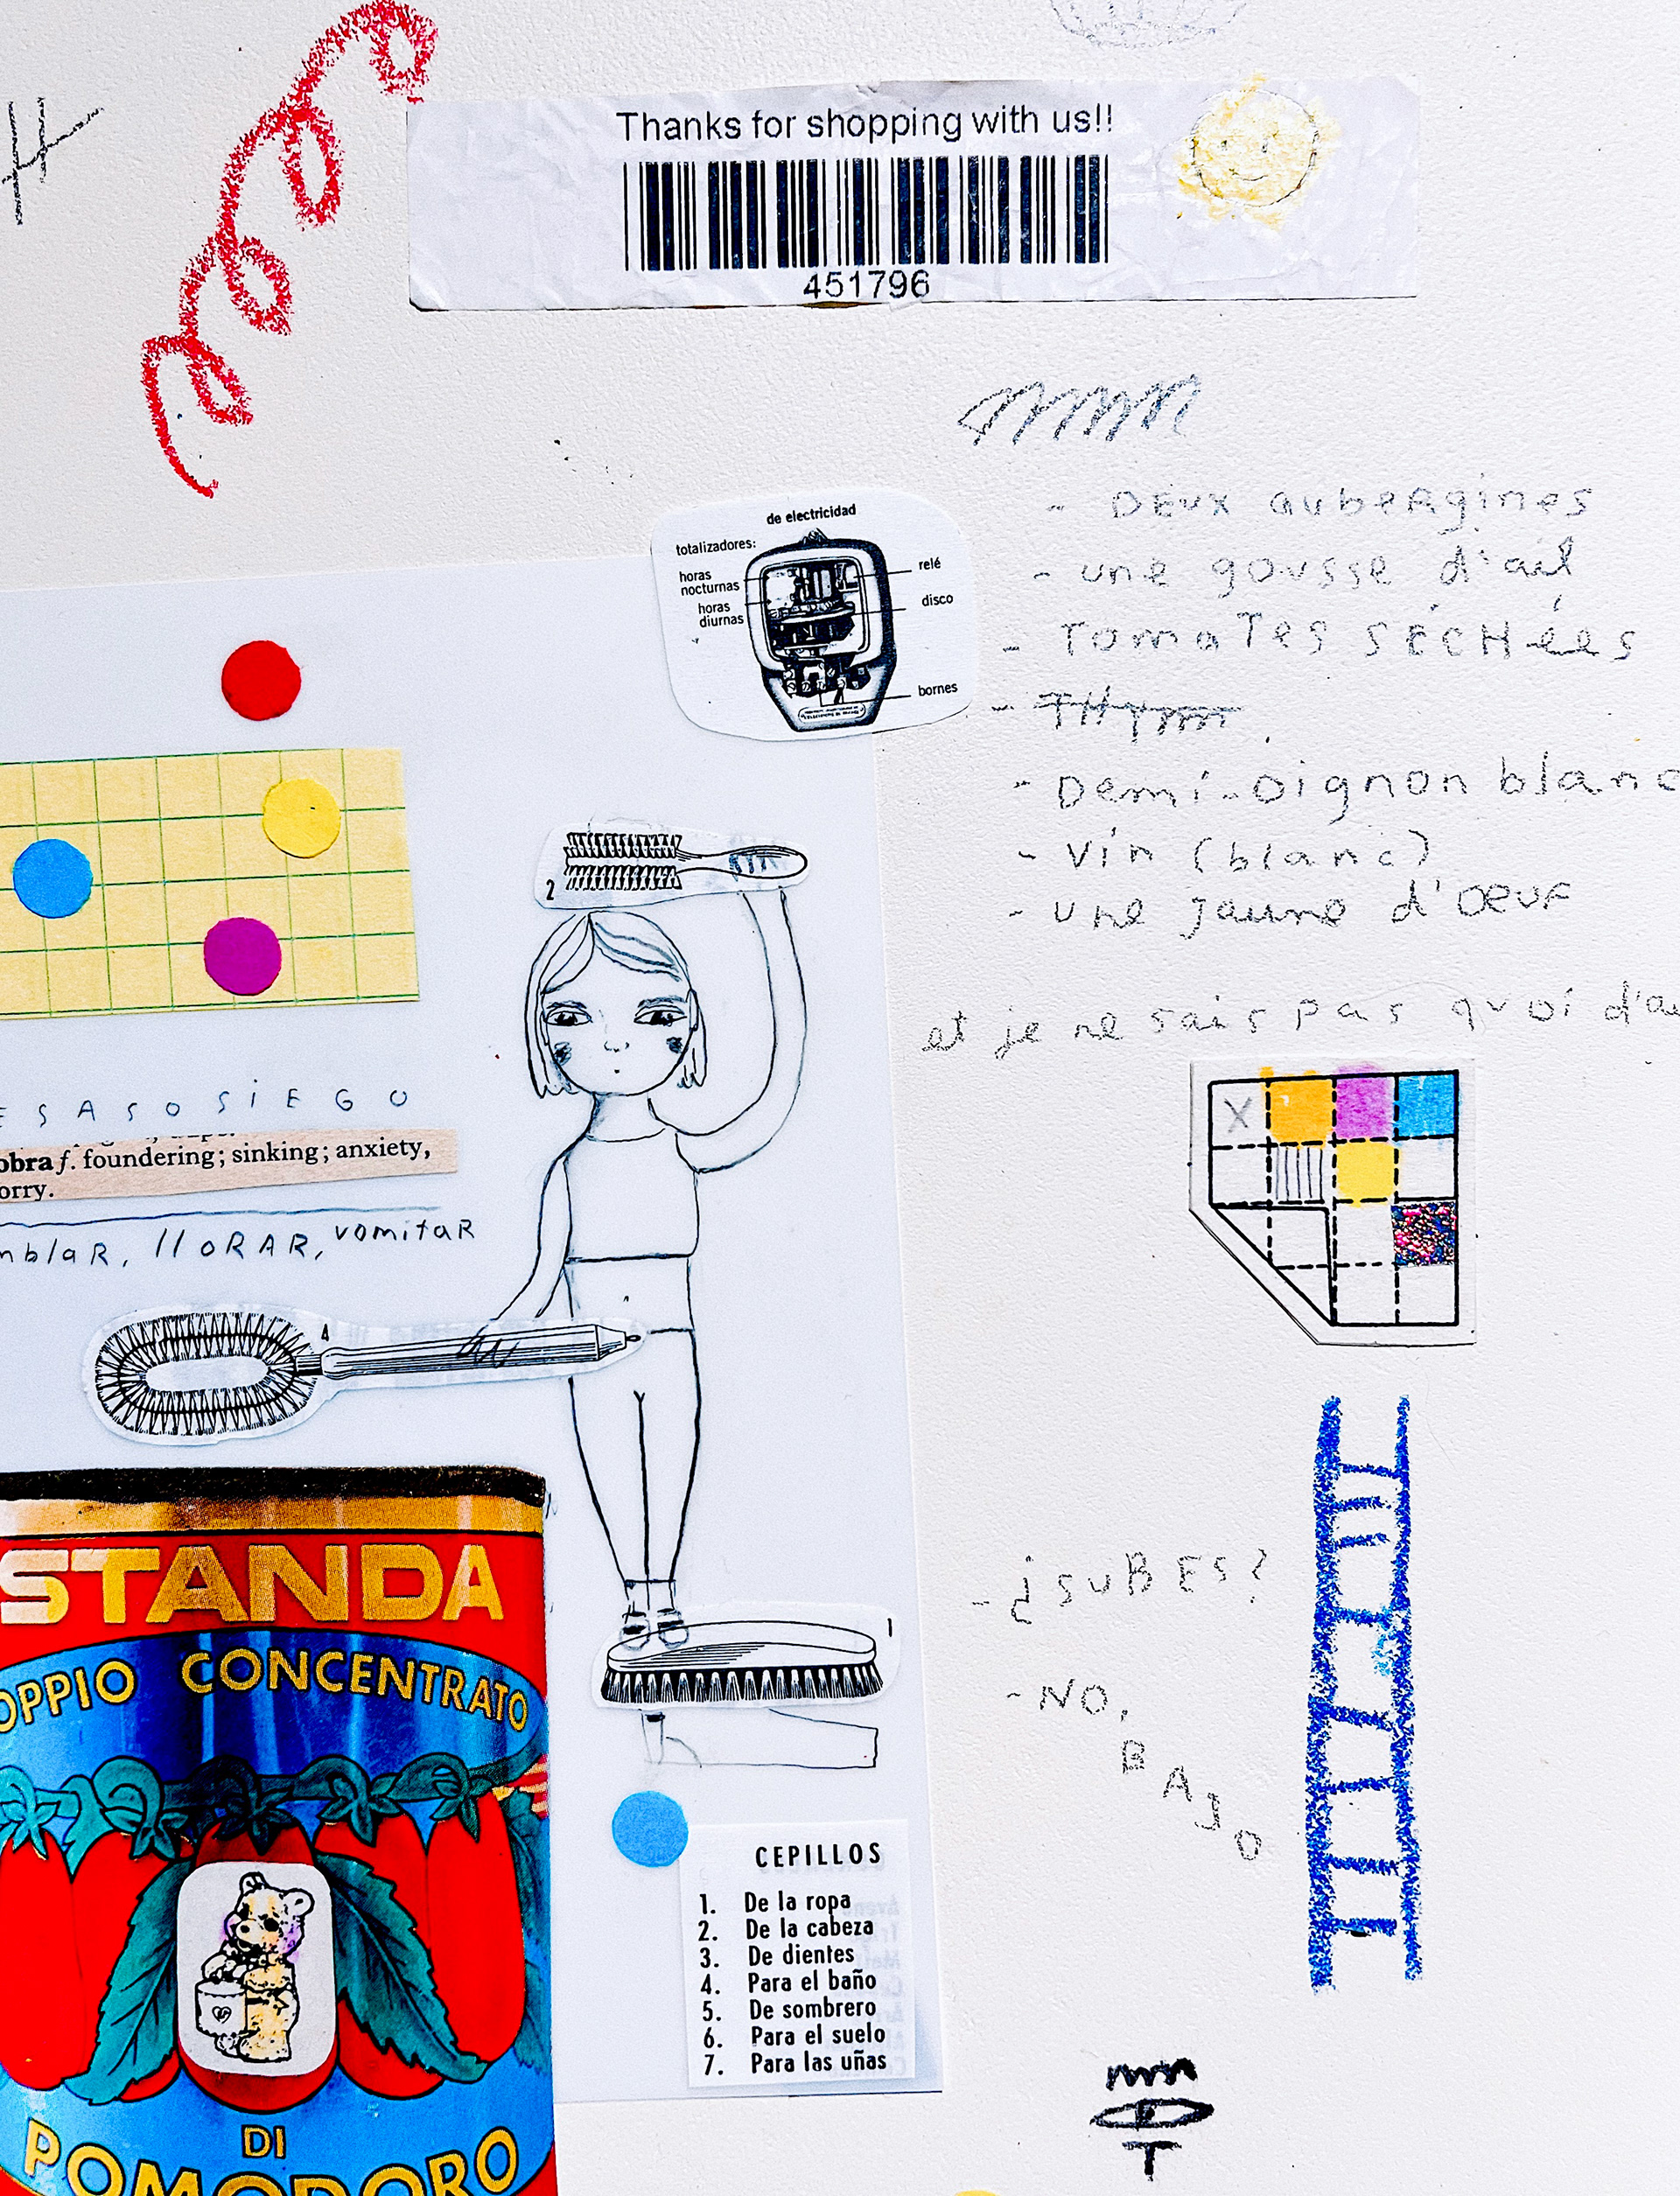 Thanks for shopping with us!!
451796
de electricidad
totalizadores:
horas
nocturnas
horas
diurnas
relé
disco
bornes
- DEUX aubeRgines
- une gousse d'ail
- TomaTes SÉCHées
- THym
- Demi-oignon blanc
- Vin (blanc)
- une jaune d'OEUF
et je ne sais pas quoi d'au
2
ESASOSiEGO
obra f. foundering; sinking; anxiety,
orry.
mblaR, lloRAR, vomitaR
4
X
STANDA
OPPIO CONCENTRATO
DI
POMODORO
1
- ¿SUBES?
- NO,
BAJO
CEPILLOS
1. De la ropa
2. De la cabeza
3. De dientes
4. Para el baño
5. De sombrero
6. Para el suelo
7. Para las uñas